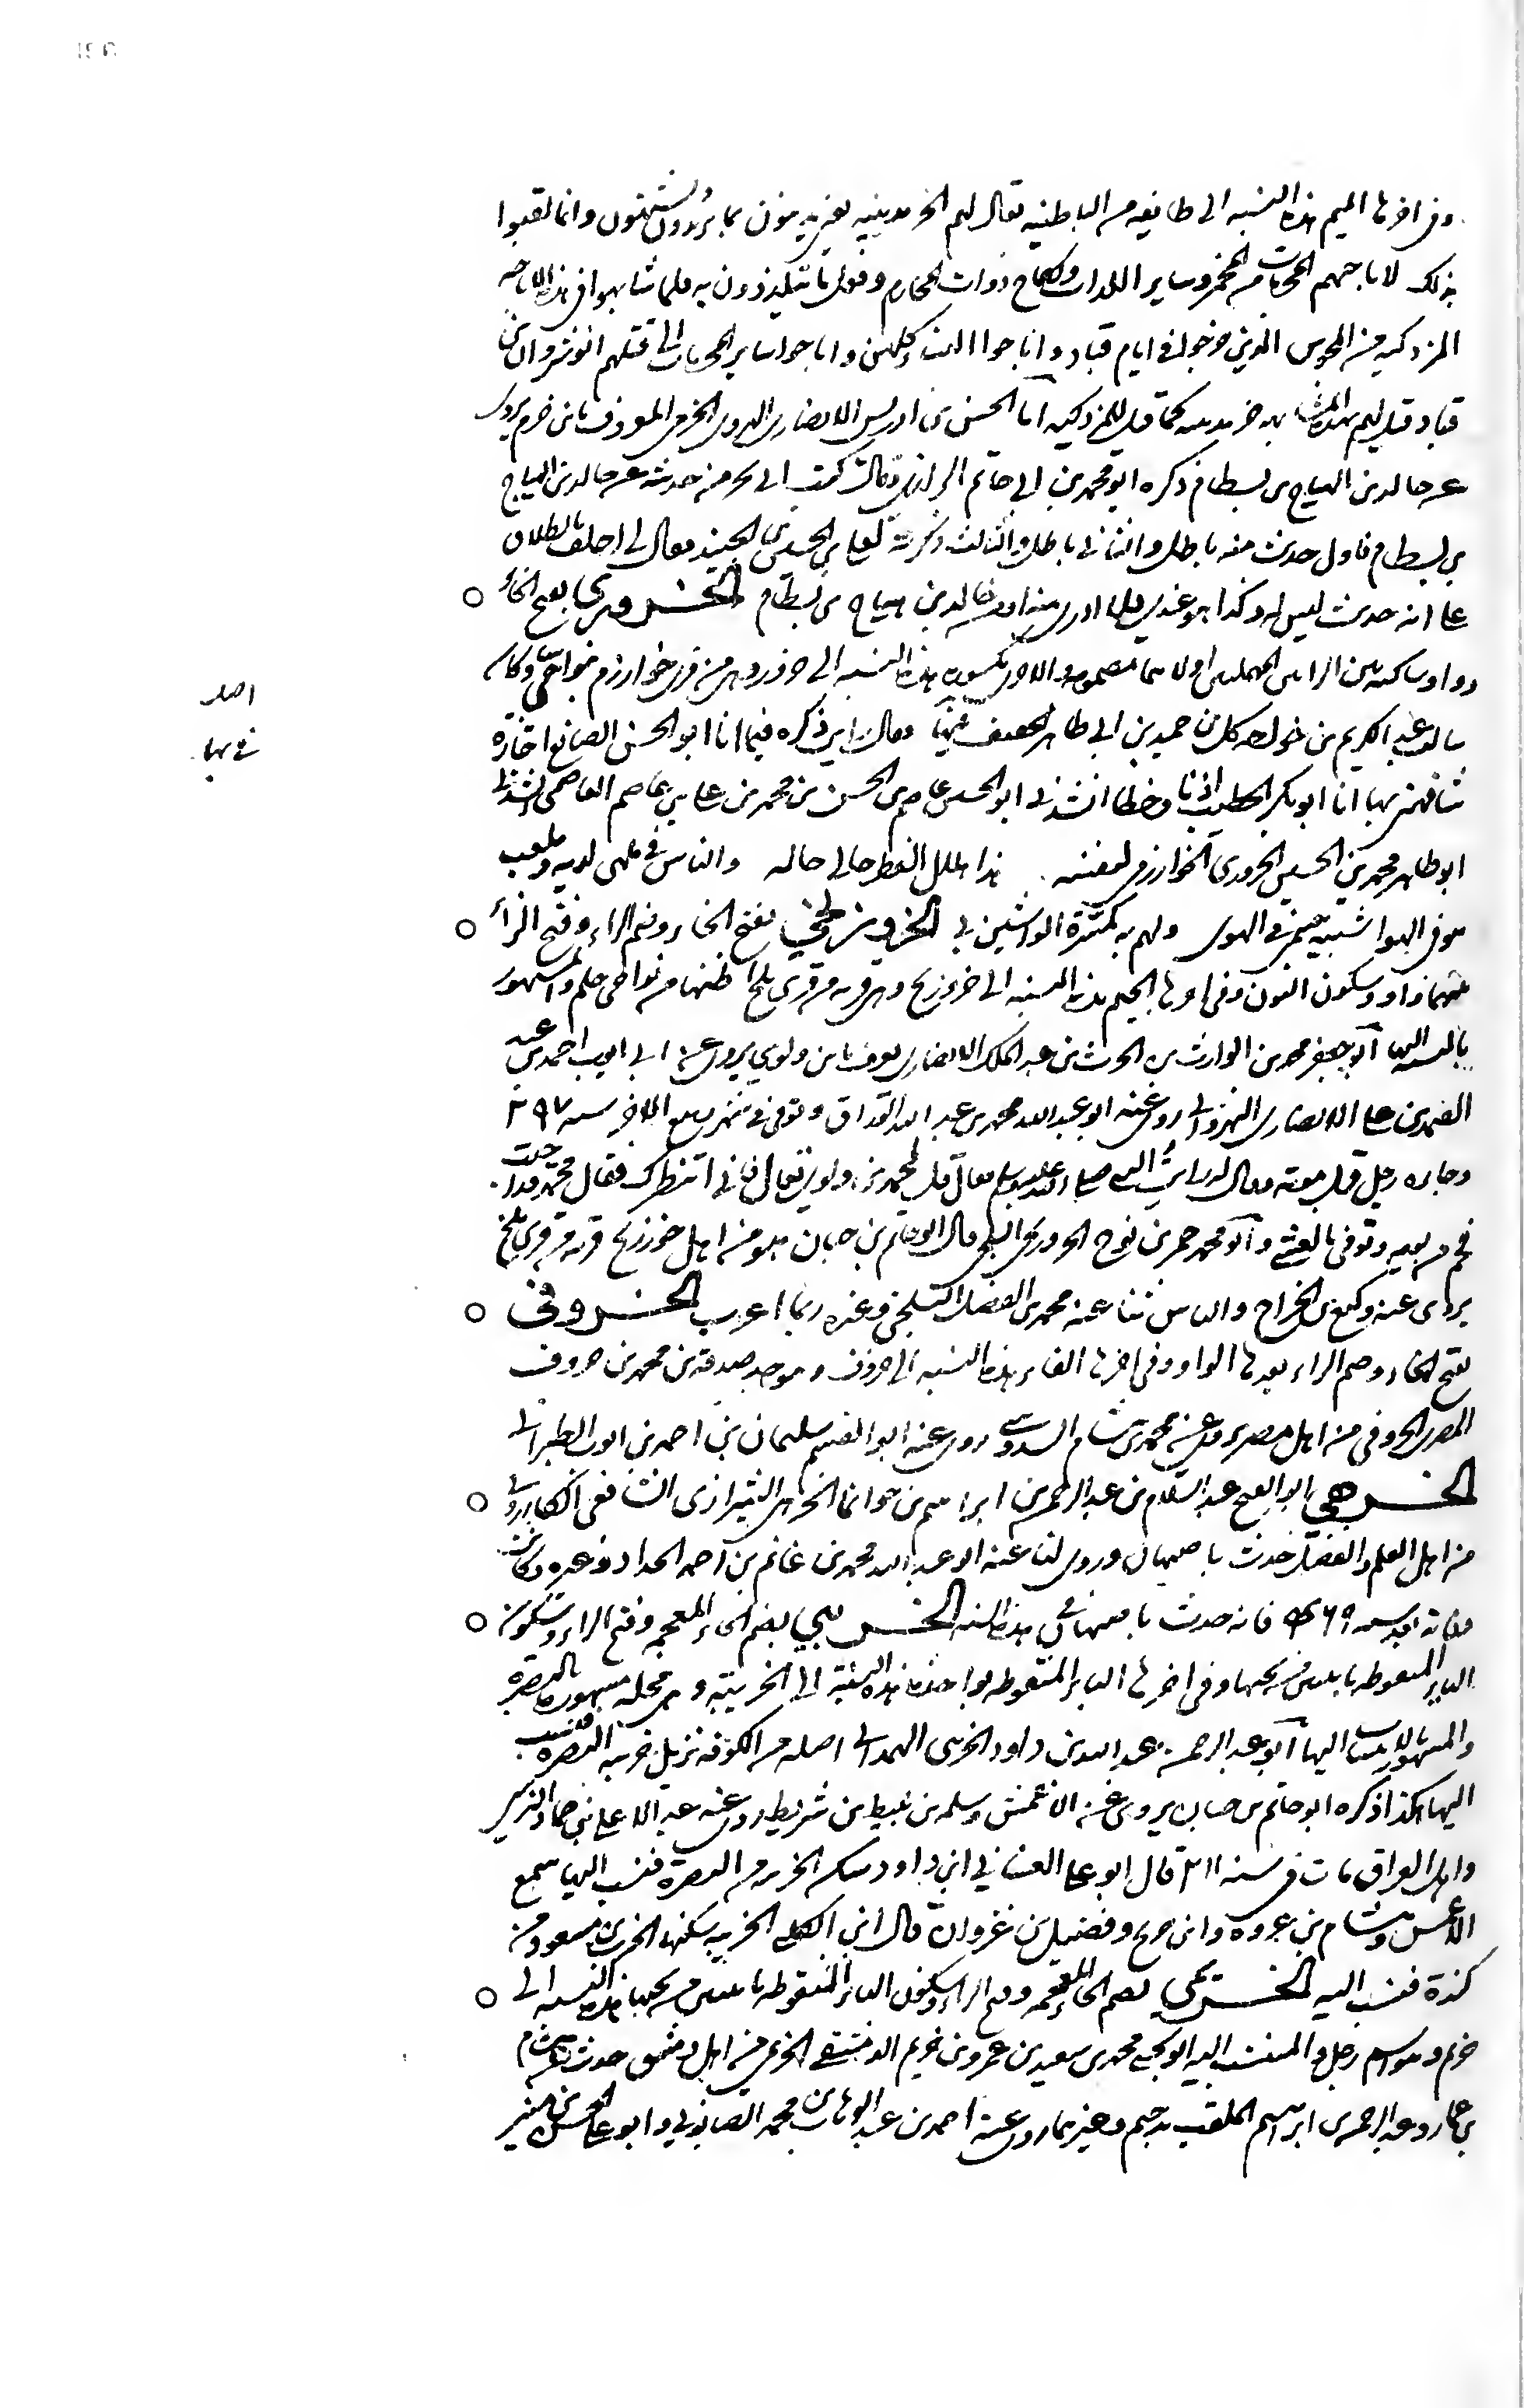 وفى اخرها الميم هذه النسبه الى طايفه من الباطنيه يقال لهم الخرمدينيه يعنى يدينون بما يريدون ويشتهون وانما لقبوا
بذلك لاباحتهم المحرمات من الخمر وساير اللذات ونكاح ذوات المحارم وفعل ما يتلذذون به فلما شابهوا فى هذه الاباحه
المزدكيه من المجوس الذين خرجوا فى ايام قباد واباحوا النساء كلهن واباحوا ساير المحرمات الى ان قتلهم انوشروان بن
قباد قيل لهم بهذه المشابهه خرمدينيه كما قيل للمزدكيه اما الحسن بن ادريس الانصارى الهروى الخرمى المعروف بابن خرم يروى
عن خالد بن الهياج بن بسطام ذكره ابو محمد بن ابى حاتم الرازى وقال كتب الى بجزء من حديثه عن خالد بن الهياج
بن بسطام فاول حديث منه باطل والثانى باطل والثالث ذكرته لعلى بن الحسين بن الجنيد فقال لى احلف بالطلاق
على انه حديث ليس له وكذا هو عندى فلا ادرى منه او من خالد بن هياج بن بسطام الخرورى بفتح الخاء
وواو ساكنه بين الراءين المهملتين اولاهما مضمومه والاخرى مكسوره هذه النسبه الى خرور وهى من قرى خوارزم بنواحى وكان
اصلـ
فى بها
شافهنى بها انا ابو بكر الخطيب اذنا وخطا انشدنى ابو الحسين عاصم بن الحسن بن محمد بن على بن عاصم العاصمى انشدنى
ابو طاهر محمد بن الحسين الخرورى الخوارزمى لنفسه هذا هلال الفطر حالى حاله والناس فى ملهى لديه وملعب
هو فى الهوا شبيه جسمى فى الهوى ولهم به كمسرة الواشين بى الخرورنجى بفتح الخاء وضم الراء وفتح الزاء
بينهما واو وسكون النون وفى اخرها الجيم هذه النسبه الى خرورنج وهى قريه من قرى بلخ اظنها من نواحى خلم والمشهور
بالنسبه اليها ابو جعفر محمد بن الوارث بن الحرث بن عبد الملك الانصارى يعرف بابن ولوى يروى عن ابى ايوب احمد بن عبد
الصمد بن على الانصارى النهروانى روى عنه ابو عبد الله محمد بن عبد الله الوراق وتوفى فى شهر ربيع الاخر سنه ٢٩٧
وجاءه رجل قبل موته وقال له رايت النبى صلى الله عليه وسلم فقال قل لمحمد بن ولوى تعال فانى انتظرك فقال محمد قد جيت
فحم من يومه وتوفى بالعشى وابو محمد حم بن نوح الخرورنجى البلخى قال ابو حاتم بن حبان هو من اهل خرورنج قريه من قرى بلخ
يروى عن وكيع بن الجراح والناس ثنا عنه محمد بن الفضل البلخى وغيره ربما اغرب الخروفى
بفتح الخاء وضم الراء بعدها الواو وفى اخرها الفاء هذه النسبه الى خروف وهو جد صدقه بن محمد بن خروف
المصرى الخروفى من اهل مصر يروى عن محمد بن هشام السدوسى روى عنه ابو القسم سليمان بن احمد بن ايوب الطبرانى
الخرهى ابو الفتح عبد السلام بن عبد الرحمن بن ابراهيم بن جوانا الخرهى الشيرازى الشافعى الكازرونى
من اهل العلم والفضل حدث باصبهان وروى لنا عنه ابو عبد الله محمد بن غانم بن احمد الحداد وغيره وكانت
وفاته بعد سنه ٤٦٩ فانه حدث باصبهان فى هذه السنه الخريبى بضم الخاء المعجمه وفتح الراء وسكون
الياء المنقوطه باثنتين من تحتها وفى اخرها الباء المنقوطه بواحده هذه النسبه الى الخريبه وهى محله مشهوره بالبصره
والمشهور بالانتساب اليها ابو عبد الرحمن عبد الله بن داود الخريبى الهمدانى اصله من الكوفه نزيل خريبه البصره فنسب
اليها هكذا ذكره ابو حاتم بن حبان يروى عن الاعمش وسلمه بن نبيط بن شريط روى عنه عبد الاعلى بن حماد النرسى
واهل العراق مات فى سنه ٢١١ قال ابو على الغسانى ابن داود سكن الخريبه من البصره فنسب اليها سمع
الاعمش وهشام بن عروه وابن جريج وفضيل بن غزوان قال ابن الكلبى الخريبه سكنها الحرث بن مسعود من
كندة فنسب اليه الخريمى بضم الخاء المعجمه وفتح الراء وسكون الياء المنقوطه باثنتين من تحتها هذه النسبه الى
خريم وهو اسم رجل والمنتسب اليه ابو يحيى محمد بن سعيد بن عمرو بن خريم الدمشقى الخريمى من اهل دمشق حدث عن هشام
بن عمار وعبد الرحمن بن ابراهيم الملقب بدحيم وغيرهما روى عنه احمد بن عبد الوهاب بن محمد الصابونى وابو على الحسن بن منير